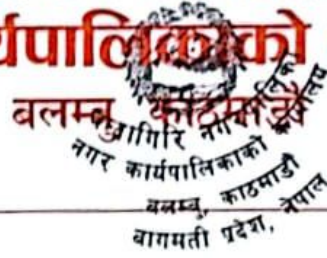 र्यपालिकाको
बलम्बु, काठमाडौं
चन्द्रागिरि नगरपालिका
नगर कार्यपालिकाको कार्यालय
बलम्बु, काठमाडौं
बागमती प्रदेश, नेपाल